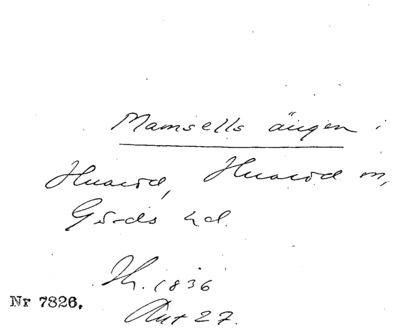 Mamsells ängen i
Huaröd, Huaröd sn,
Gärds hd.
Th. 1836
Nr 7826.
Akt 27.